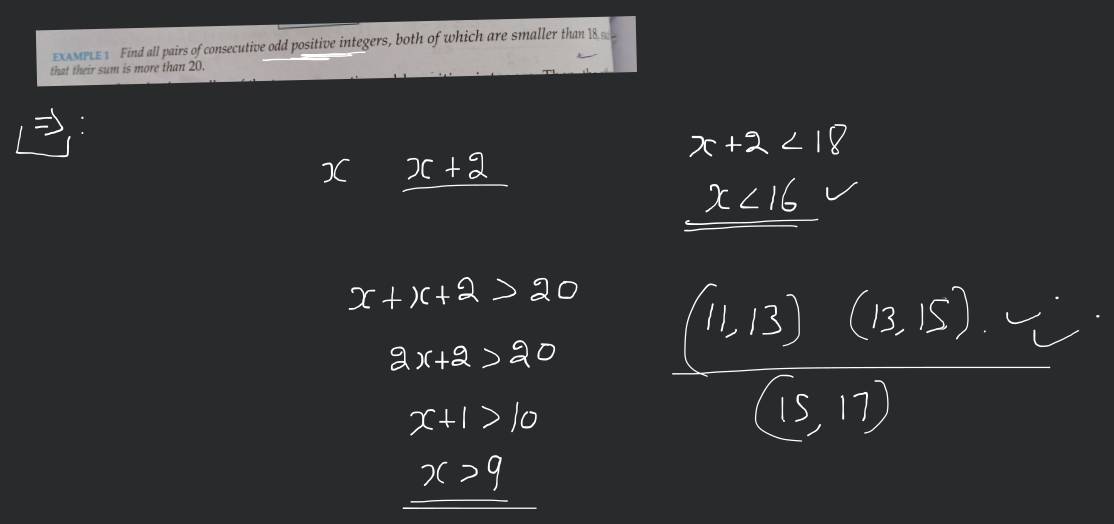 EXAMPLE 1 Find all pairs of consecutive odd positive integers, both of which are smaller than 18,
that their sum is more than 20.
⇒:
x x+2
x+2<18
x<16 ✓
x+x+2>20
2x+2>20
x+1>10
x>9
(11,13) (13,15).
(15,17)